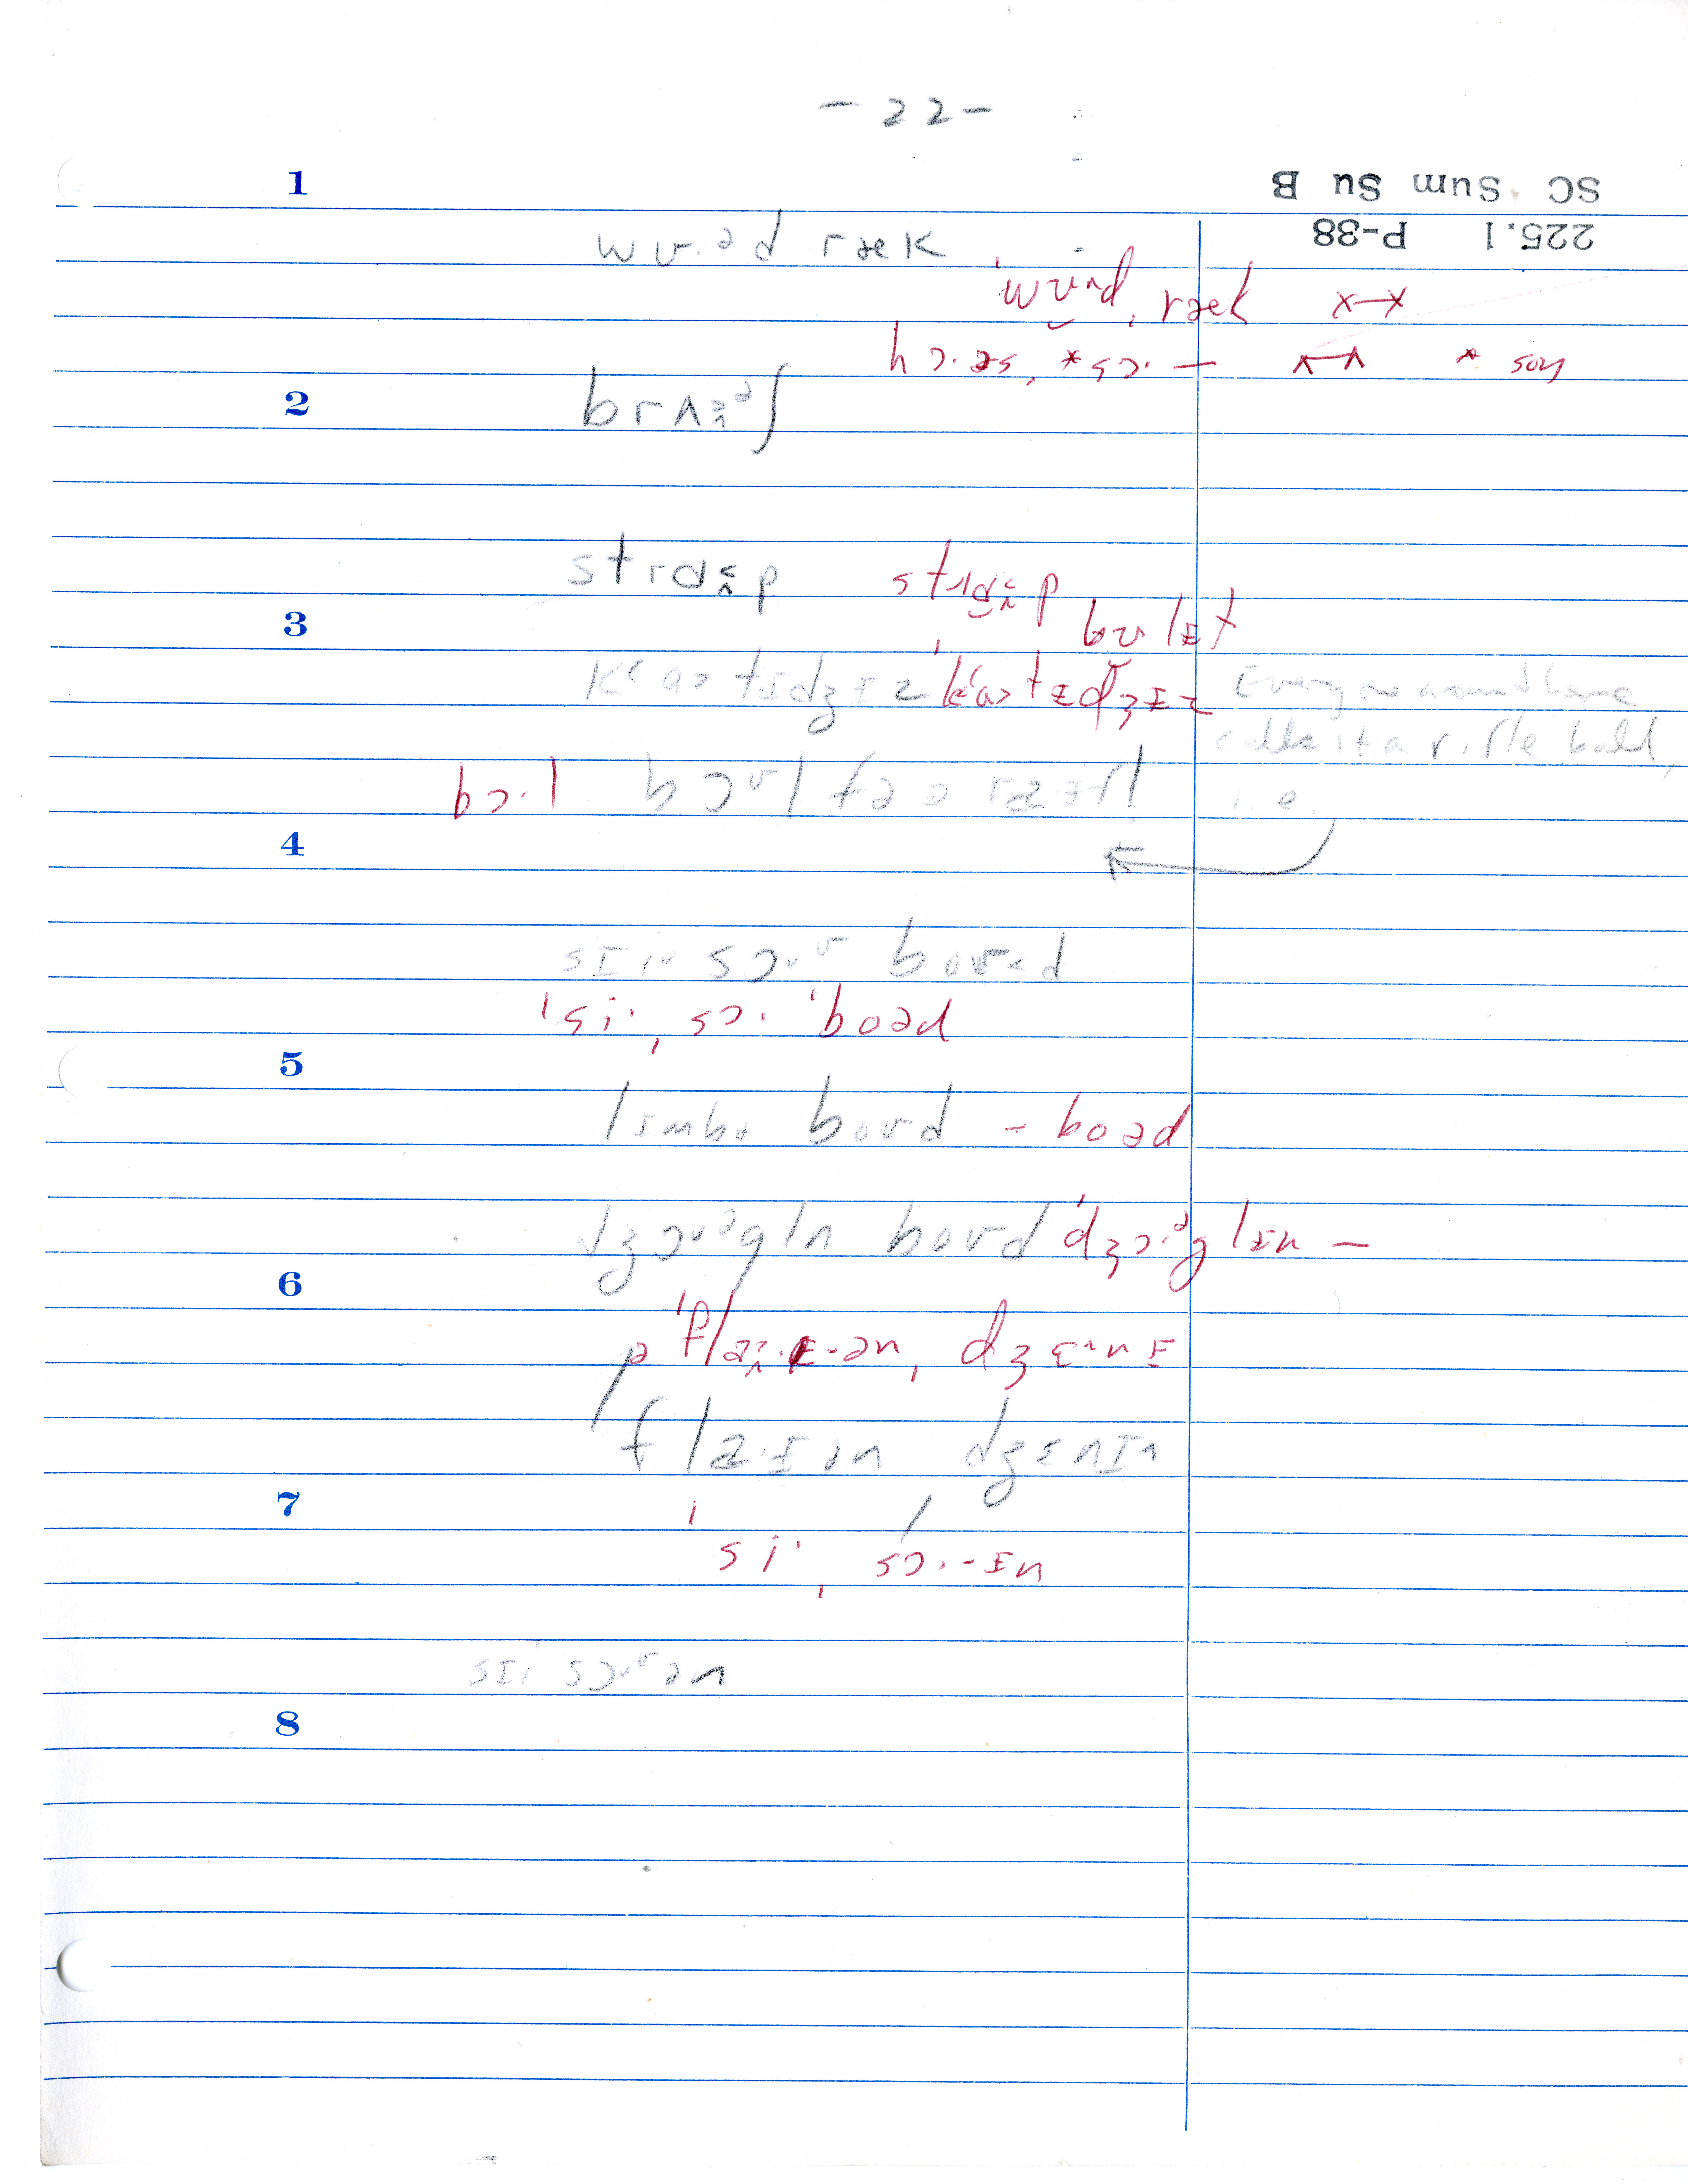 - 22 -
SC Sum Su B
225.1 P-38
1
wʊ.əd ræk
ˈwʊᵻd ˌræk x—x
hɔ.əs, *sɔ. — ʌ—ʌ * say
2
brʌɜᵊʃ
strɑɛp strɑɛp
bʊlᵻt
3
kʻaətɪdʒɪz ˈkʻaətᵻdʒᵻz Everyone around here
calls it a rifle ball,
bɔ.l bɔʊl fə ə raɪfl i.e.
4
sɪi sɔʊ boʊəd
ˈsi. ˌsɔ. ˈboəd
5
lɪmbə boʊd - boəd
dʒɔʊᵊgln boʊd ˈdʒɔ.ᵊglᵻn —
6
ˈflaɪ.ᵻ-ən, dʒɛ^nᵻ
flaɪən dʒɛnɪ
7
ˈsi. ˌsɔ.-ᵻn
sɪi sɔʊən
8